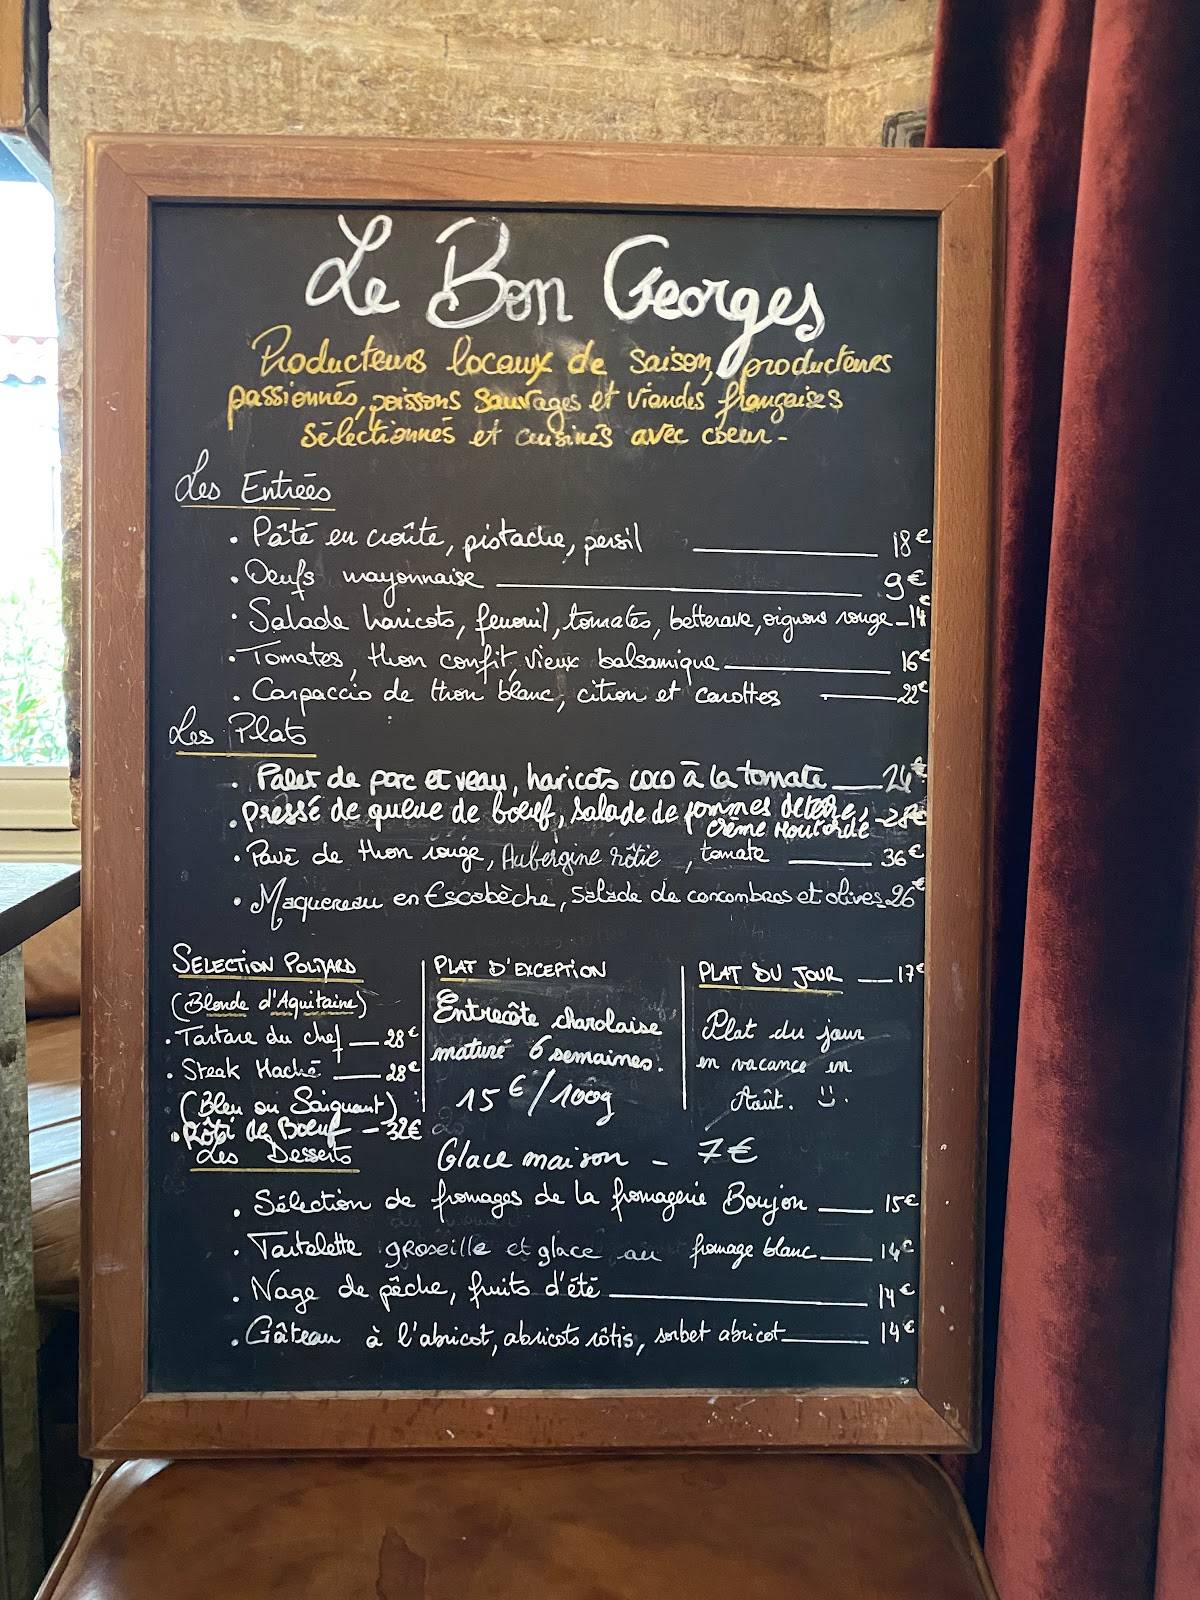 Le Bon Georges
Producteurs locaux de saison, producteurs
passionnés, poissons sauvages et viandes françaises
sélectionnés et cuisinés avec coeur-
Les Entrées
• Pâté en croûte, pistache, persil 18€
• Oeufs mayonnaise 9€
• Salade haricots, fenouil, tomates, betterave, oignons rouge 14€
• Tomates, thon confit, vieux balsamique 16€
• Carpaccio de thon blanc, citron et carottes 22€
Les Plats
• Palet de porc et veau, haricots coco à la tomate 24€
• pressé de queue de boeuf, salade de pommes de terre, 28€
crème moutarde
• Pavé de thon rouge, Aubergine rôtie, tomate 36€
• Maquereau en Escabèche, salade de concombres et olives 26€
SELECTION POLMARD
(Blonde d'Aquitaine)
• Tartare du chef 28€
• Steak Haché 28€
(Bleu ou Saignant)
• Rôti de Boeuf - 32€
PLAT D'EXCEPTION
Entrecôte charolaise
maturé 6 semaines.
15€/100g
PLAT DU JOUR 17€
Plat du jour
en vacance en
Août. :)
Les Desserts
Glace maison - 7€
• Sélection de fromages de la fromagerie Boujon 15€
• Tartelette groseille et glace au fromage blanc 14€
• Nage de pêche, fruits d'été 14€
• Gâteau à l'abricot, abricots rôtis, sorbet abricot 14€